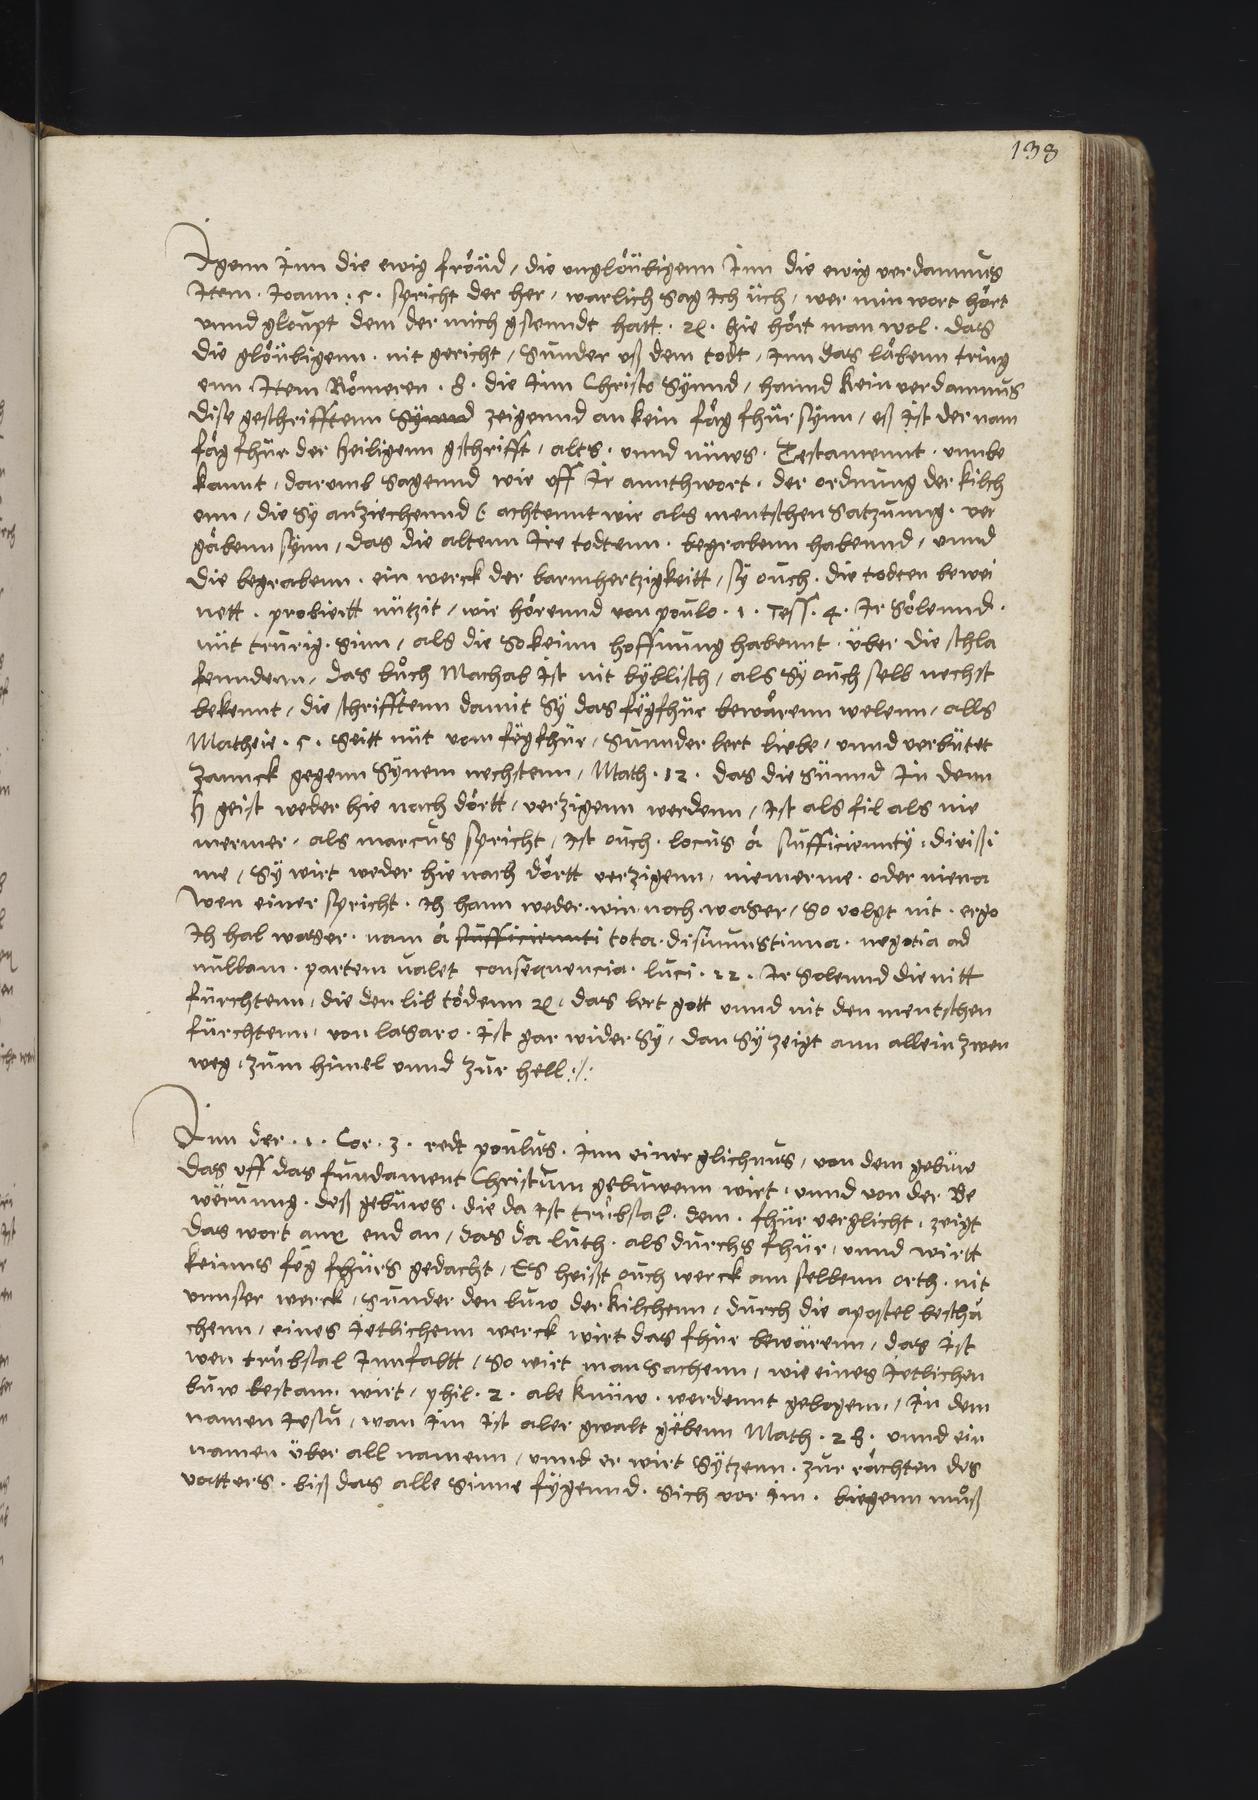 138
Igenn Inn die ewig fröüd / die unglöübigenn Inn die ewig verdamnus
Item . Joann : 5 . spricht der her / warlich sag Ich üch / wer min wort hört
unnd gloupt dem der mich gsenndt hatt . ꝛc . hie hört man wol . das
die glöübigenn . nit gericht / sunder uß dem todt / Inn das läbenn tring
enn Item Römeren . 8 . die Inn Christo synnd / hannd kein verdamnus
dise geschrifftenn synnd zeigennd an kein fäg fhür sÿnn / eß ist der nam
fäg fhür der heiligenn gschrifft / alts . unnd nüws . Testamennt . unnbe
kannt / darumb sagennd wir uff Ir annthwort . der ordnung der kilch
enn / die sy anziechennd ( achtennt wir als mentschen satzunng . ver
gäbenn sÿnn / das die altenn Ire todtenn . begrabenn habennd / unnd
die begrabenn . ein werck der barmhertzigkeitt / sy ouch . die todten bewei
nett . probiertt nützit / wir hörennd von poulo . 1 . Tess . 4 . Ir sölennd .
nüt trurig . sinn / als die so keinn hoffnung habennt . über die schla
fenndenn / das buͦch Machab ist nit byblisch / als sy ouch selb nechst
bekennt / die schrifftenn damit sy das fëgfhür bewärenn welenn / alls
Matheie . 5 . seitt nüt vom fëgfhür / sunnder lert liebe / unnd verbütet
zannck gegenn synem nechstenn / Math . 12 . das die sünnd In denn
h geist weder hie nach dörtt / verzigenn werdenn / ist als fil als nie
mermer / als marcus spricht / ist ouch . locus a sufficiennty . divisi
ne / sy wirt weder hie nach dörtt verzigenn / niemerme . oder niena
Wen einer spricht . Ich hann weder . win . noch . waser / so volgt nit . ergo
Ich hal waser . nam a sufficiennti tota . disiunnstinna . negatia ad
nullam . partem valet consequencia . luci . 12 . Ir solennd die nitt
fürchtenn / die den lib tödenn ꝛc / das lert gott unnd nit den mentschen
fürchtenn / von lasaro . ist gar wider sy / dan sy zeigt ann allein zwen
weg . zum himel unnd zur hell :/:
Inn der . 1 . Cor . 3 . redt poulus . Inn einer glichnus / von dem gebüw
das uff das fundament Christum gebuwenn wirt . unnd von der be
wërunng . deß gebuws . die da ist trübsal . dem . fhür verglicht . zeigt
das wort am end an / das da luth . als durchs fhür / unnd wirtt
keinns feg fhürs gedacht / Es heißt ouch werck am selbenn orth . nit
unnser werck / sunder den buw der kilchenn / durch die apostel beschä
chenn / eines Ietlichenn werck wirt das fhür bewärenn / das ist
wen trübsal Innfaltt / so wirt man sächenn / wie eines Ietlichen
buw bestann wirt / phil . 2 . ale knüw . werdennt gebogenn / In dem
namen Iesu / wan Im ist aler gwalt gëbenn Math . 28 . unnd ein
namen über all namenn / unnd er wirt sÿtzenn . zur rächten des
vatters . biß das alle sinne fÿgennd . sich vor Im . biegenn muͦß